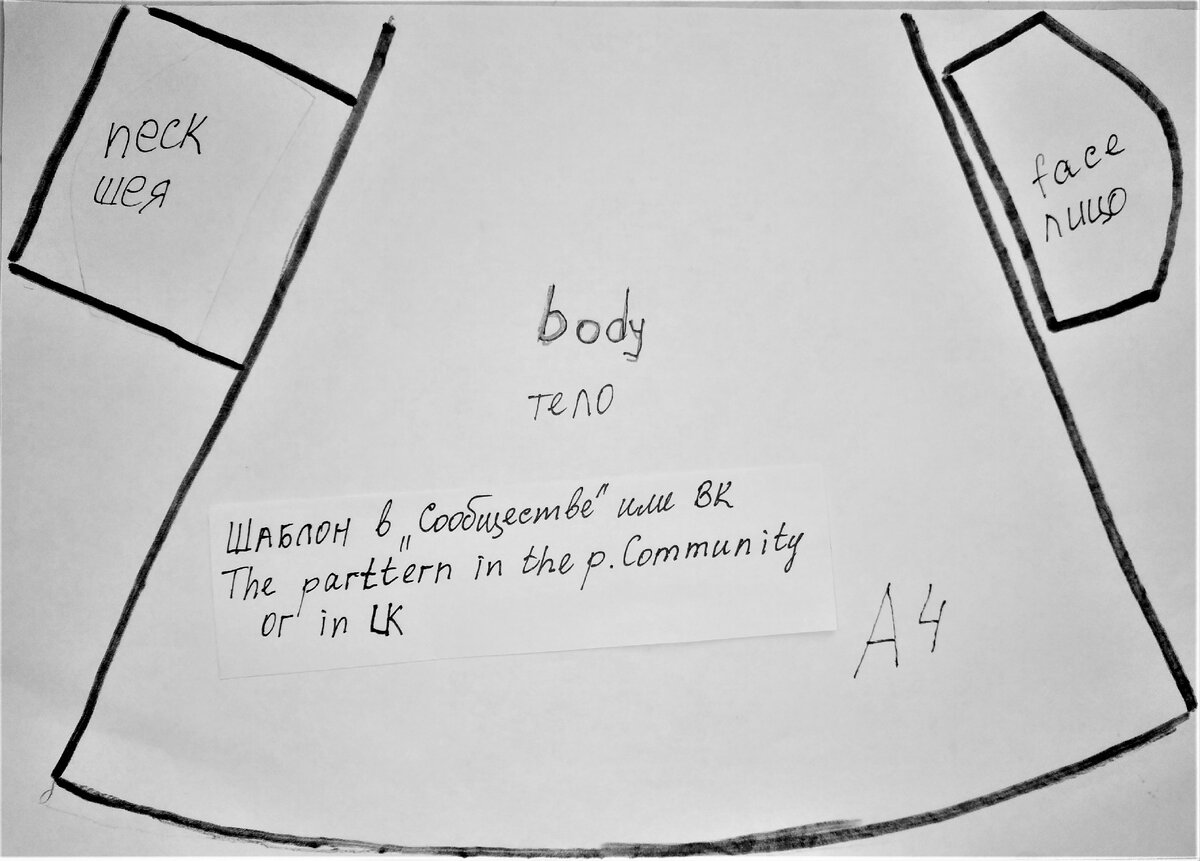 neck
шея
face
лицо
body
тело
Шаблон в „Сообществе" или ВК
The parttern in the p. Community
or in LK
А4